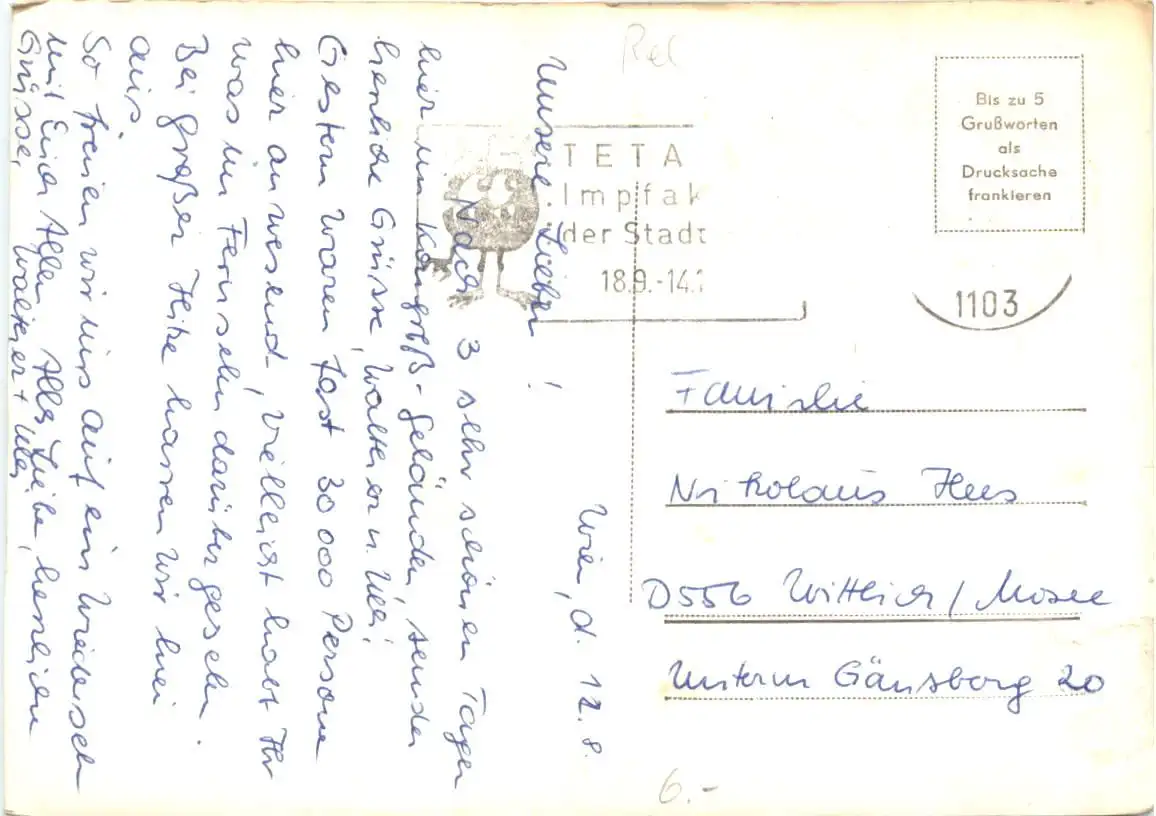 Rel
TETA
Impfak
der Stadt
18.9.-14.
1103
Bis zu 5
Grußworten
als
Drucksache
frankieren
Wien, d. 12.8.
Unsere Lieben!
Nach 3 sehr schönen Tagen
hier im Kongreß-gelände, sendet
herzliche Grüsse, Walter u. Uli!
Gestern waren fast 30000 Persone
hier anwesend, vielleicht habt Ihr
was im Fernsehn darüber gesehn.
Bei großer Hitze harren wir hier
aus.
So freuen wir uns auf ein Wiedersehn
mit Euch Allen Alles Liebe, herzlichen
Grüsse, Walter + Uli
Familie
Nikolaus Hees
D556 Wittlich/Mosel
Unterm Gänsberg 20
6.-